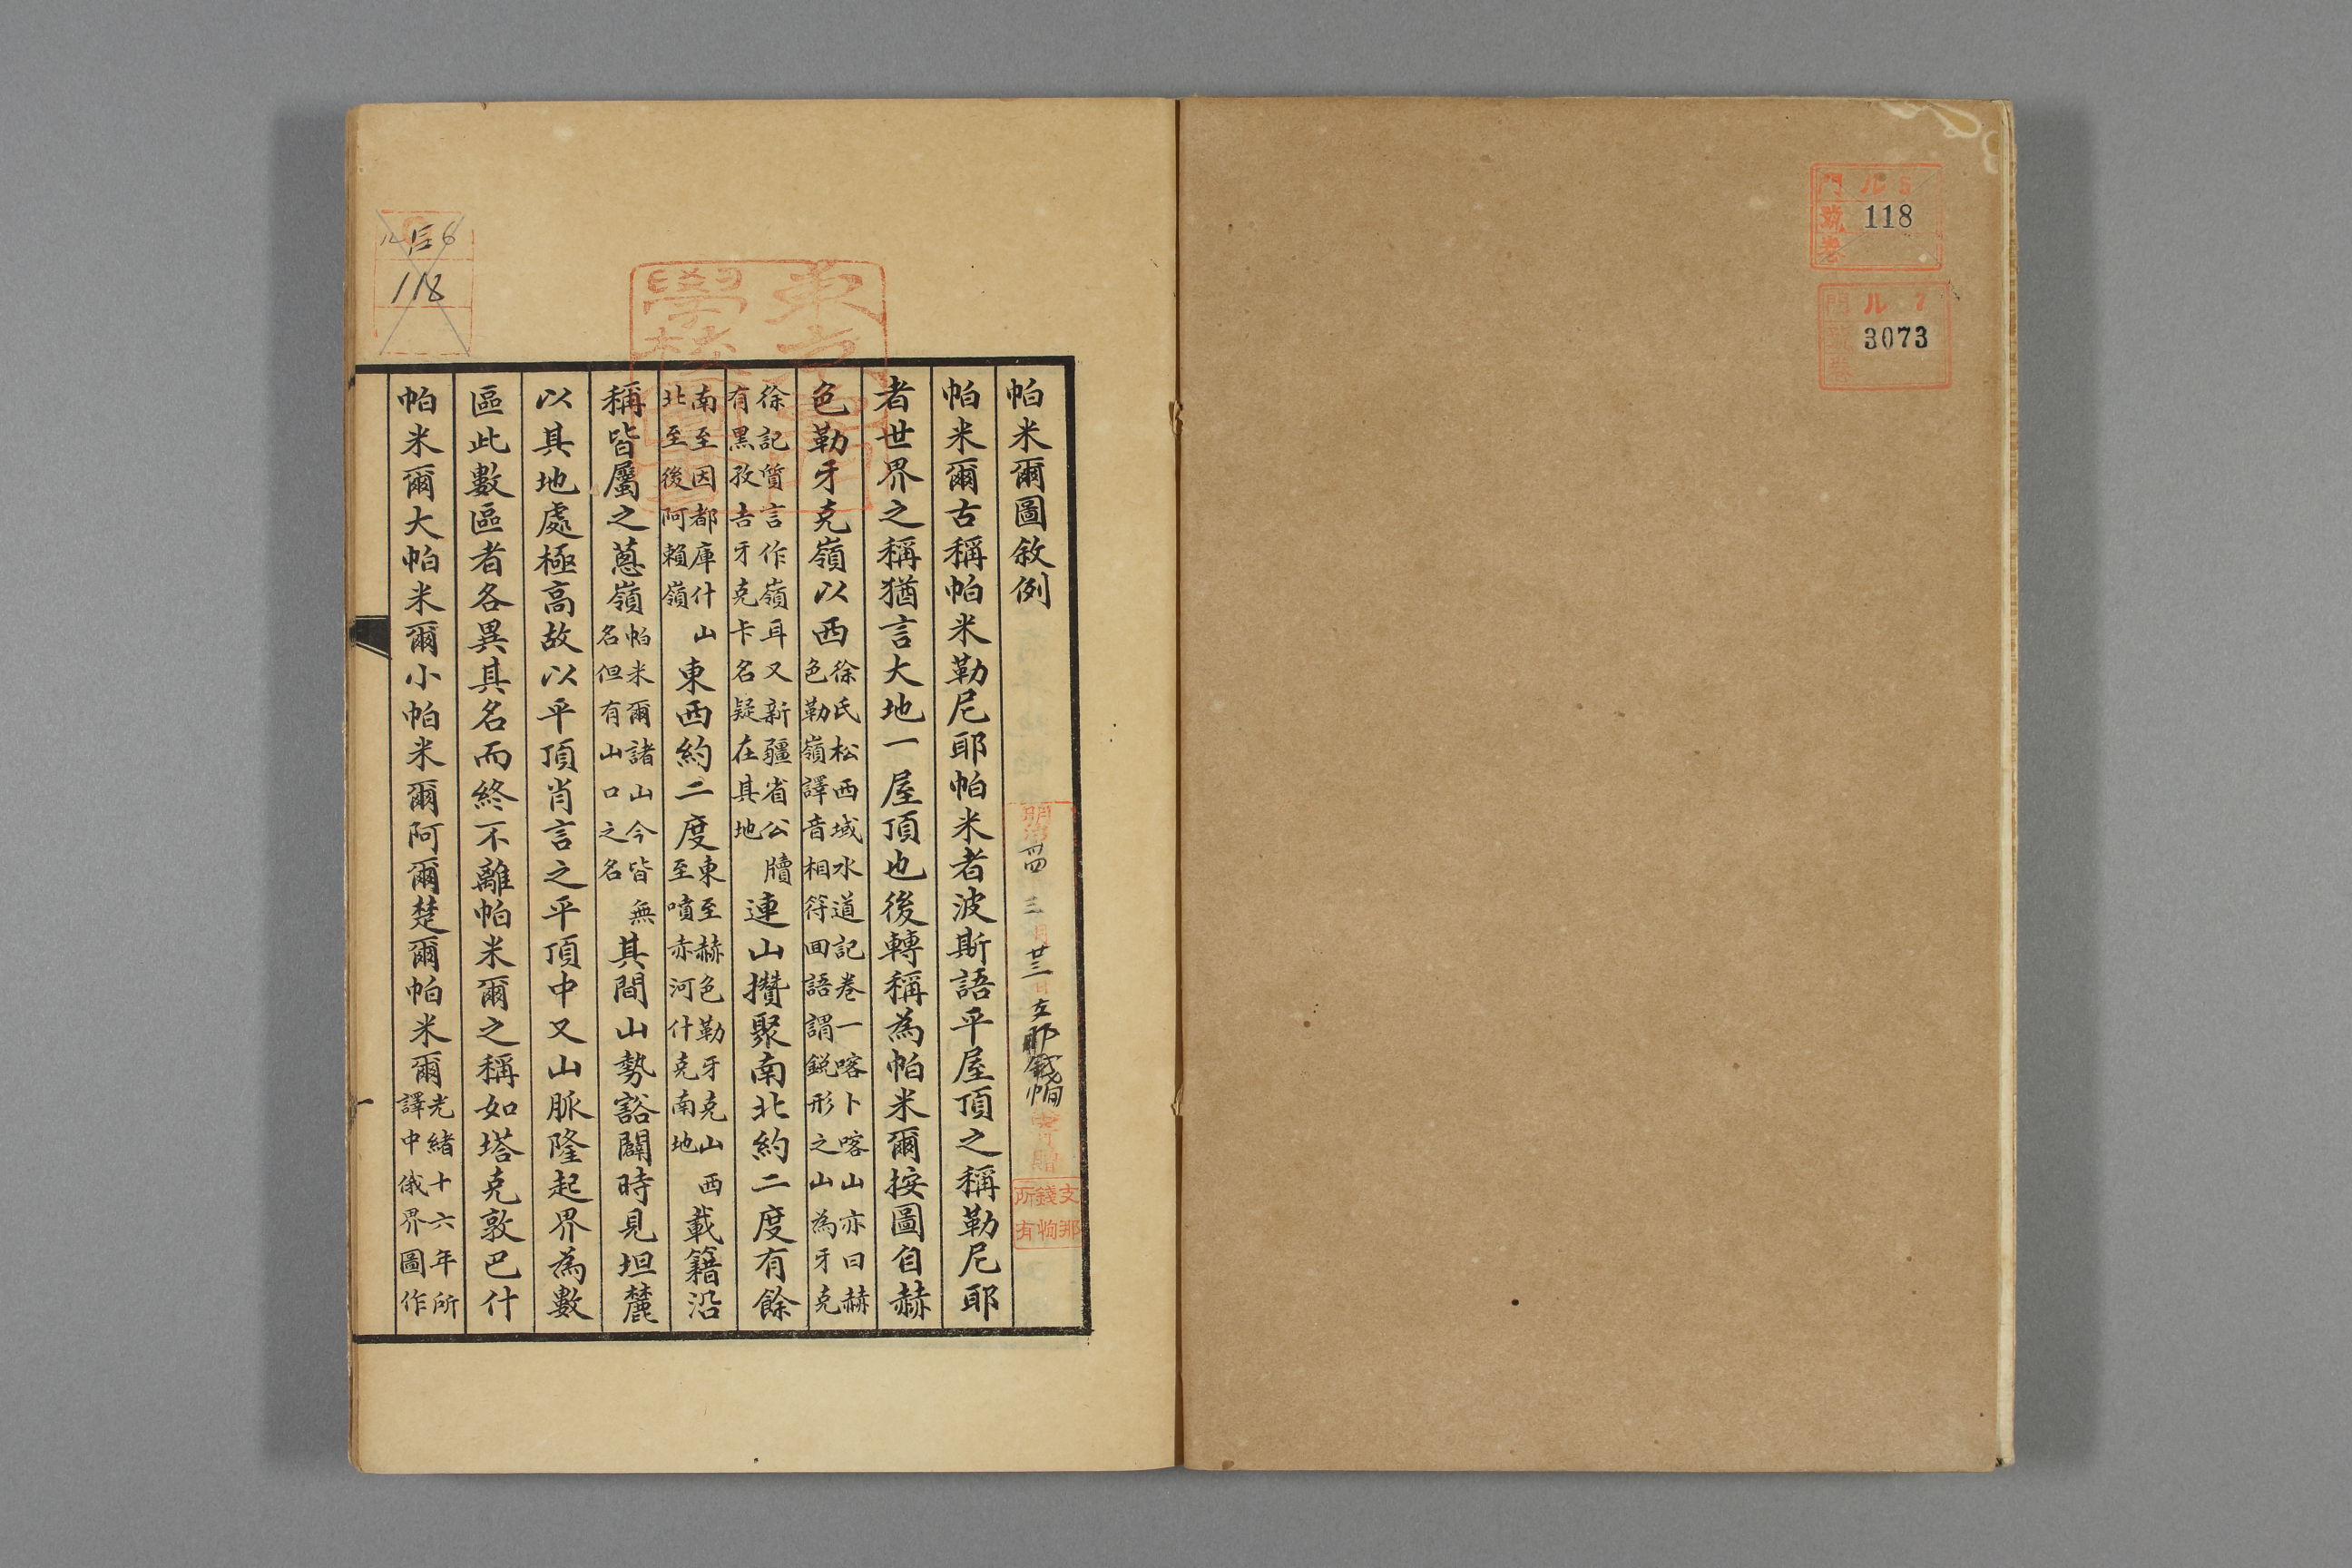 門 ル 5
號 118
卷
門 ル 7
號 3073
卷
帕米爾圖敘例
明治四四 三月廿三日支那錢幣
寄贈
支那
錢物
所有
帕米爾古稱帕米勒尼耶帕米者波斯語平屋頂之稱勒尼耶
者世界之稱猶言大地一屋頂也後轉稱為帕米爾按圖自赫
色勒牙克嶺以西徐氏松西域水道記卷一喀卜喀山亦曰赫
色勒嶺譯音相符回語謂銳形之山為牙克
徐記質言作嶺耳又新疆省公牘
有黑孜吉牙克卡名疑在其地
連山攢聚南北約二度有餘
南至因都庫什山
北至後阿賴嶺
東西約二度東至赫色勒牙克山西
至噴赤河什克南地
載籍沿
稱皆屬之蔥嶺帕米爾諸山今皆無
名但有山口之名
其間山勢豁闢時見坦麓
以其地處極高故以平頂肖言之平頂中又山脈隆起界為數
區此數區者各異其名而終不離帕米爾之稱如塔克敦巴什
帕米爾大帕米爾小帕米爾阿爾楚爾帕米爾光緒十六年所
譯中俄界圖作
一
118